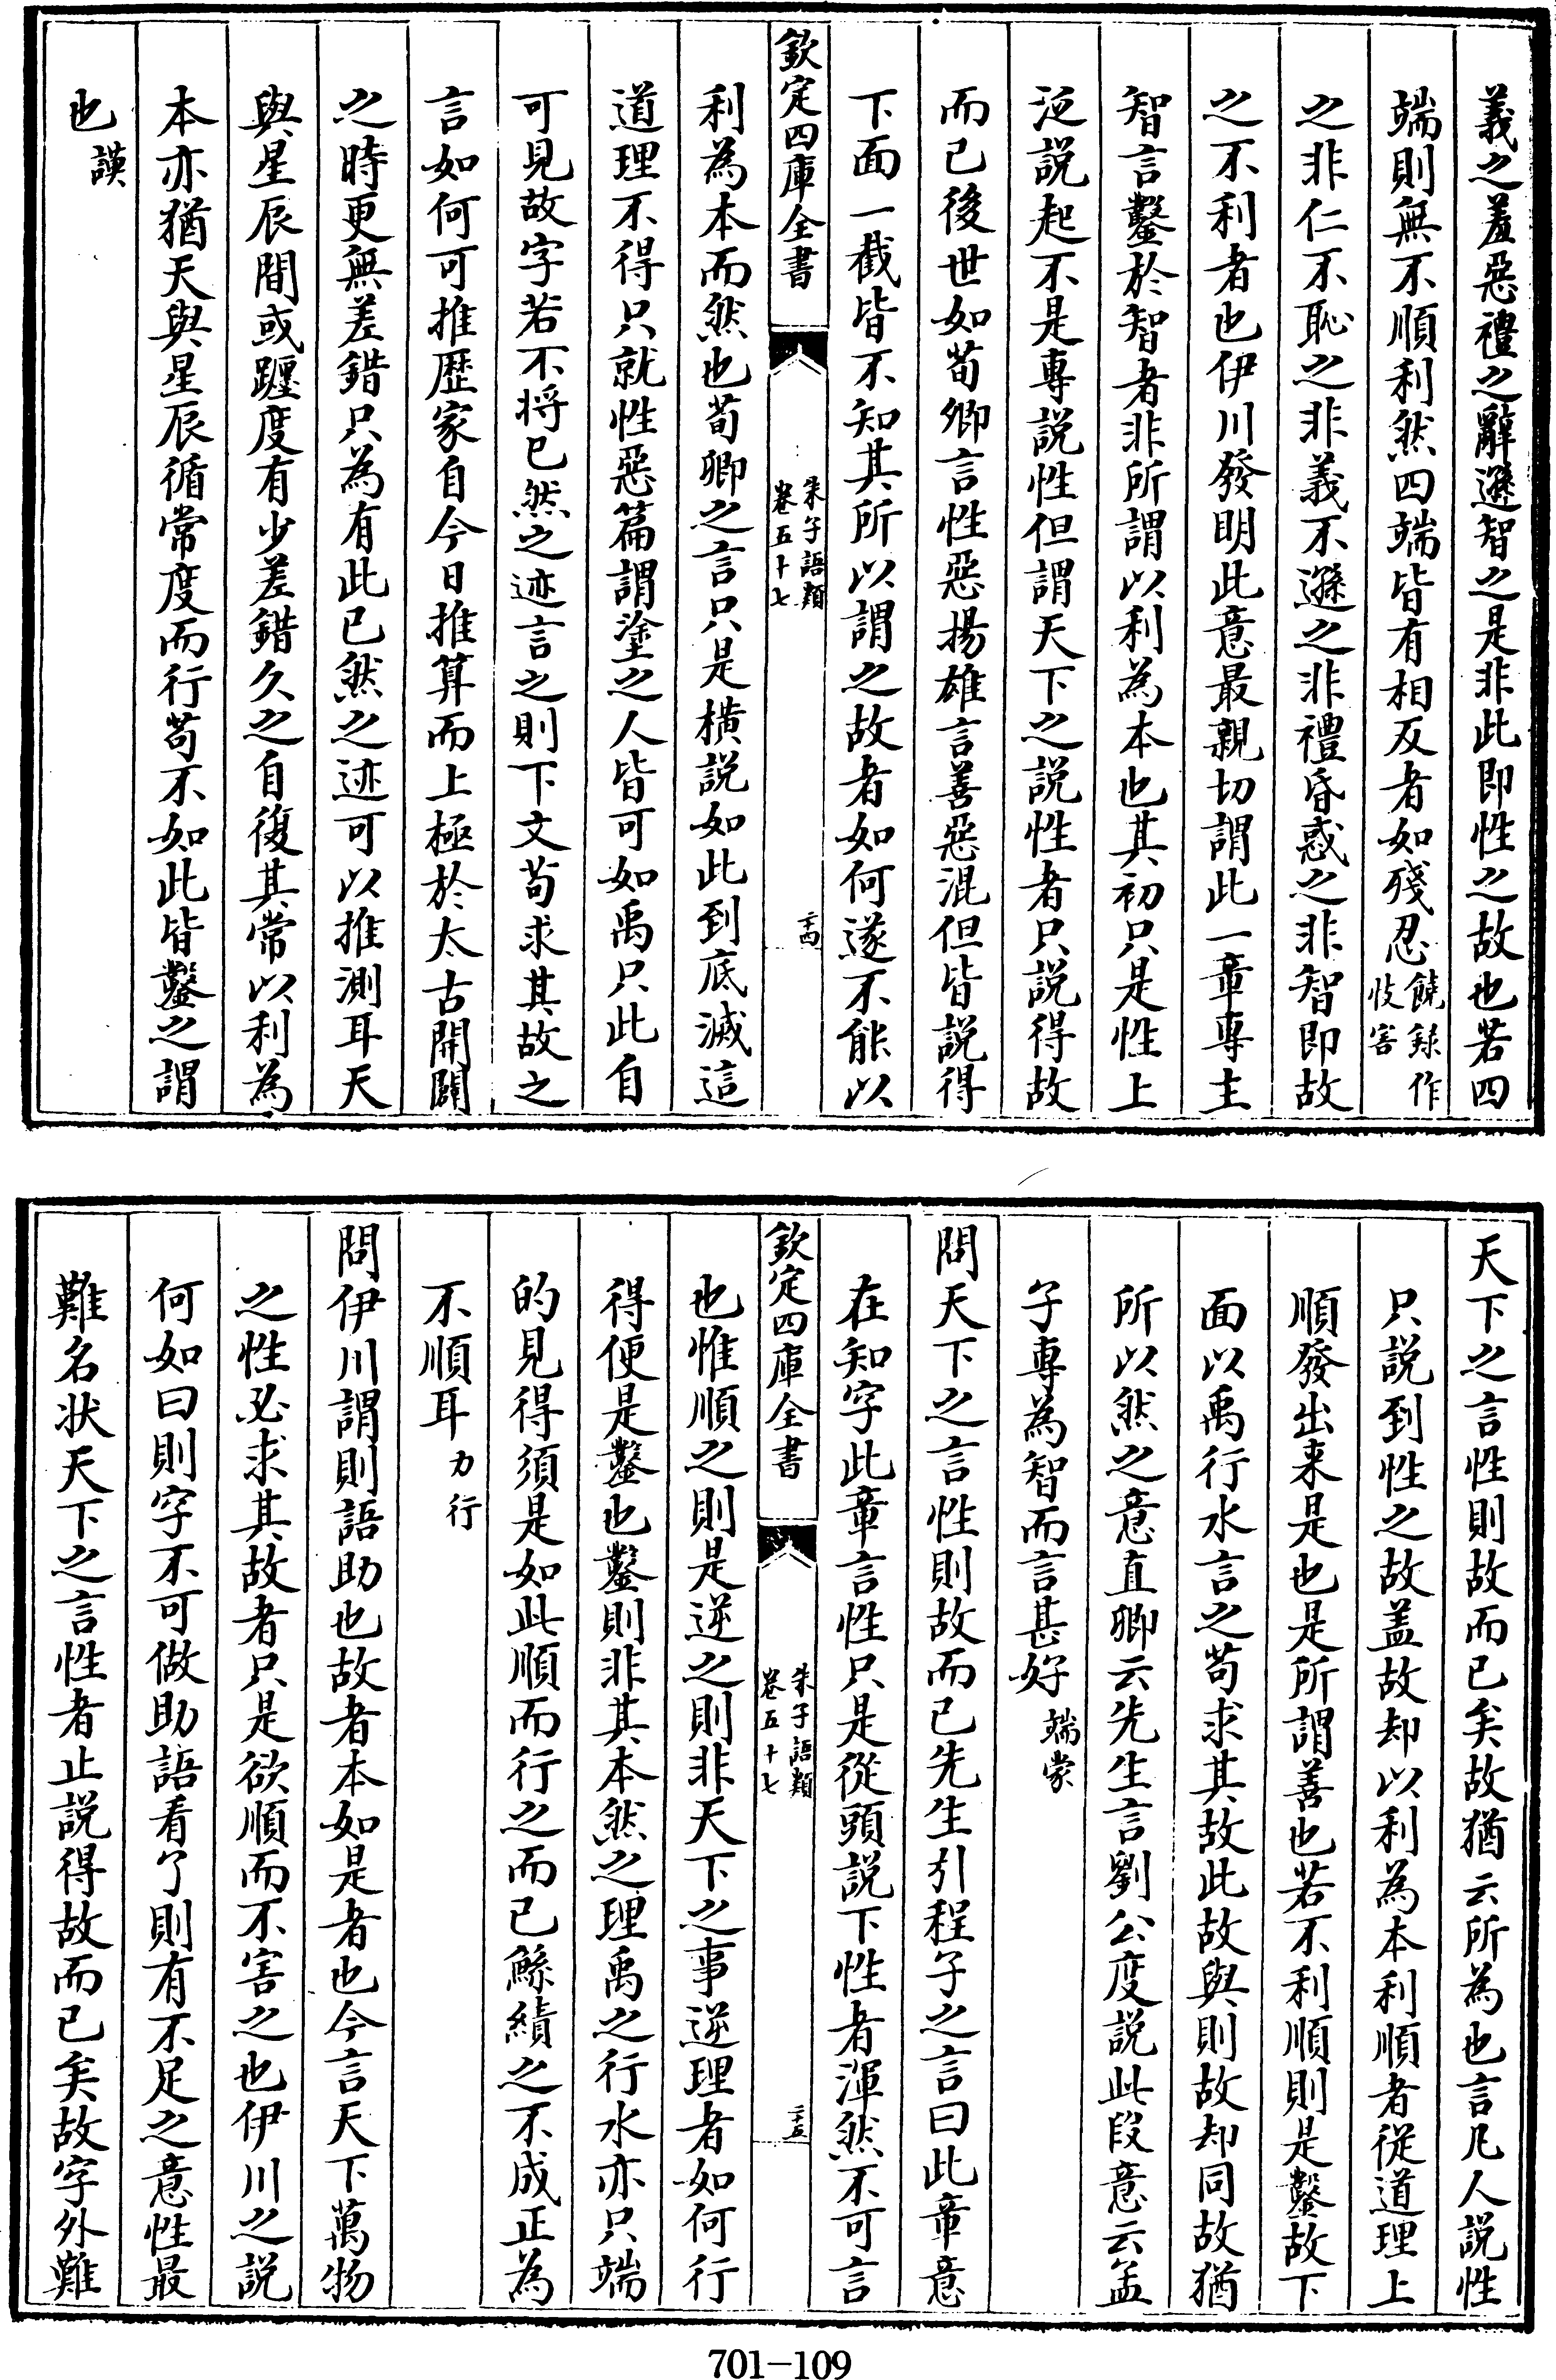 義之羞惡禮之辭遜智之是非此即性之故也若四
端則無不順利然四端皆有相反者如殘忍饒錄作忮害
之非仁不恥之非義不遜之非禮昏惑之非智即故
之不利者也伊川發明此意最親切謂此一章專主
智言鑿於智者非所謂以利為本也其初只是性上
泛説起不是專説性但謂天下之説性者只説得故
而已後世如荀卿言性惡揚雄言善惡混但皆説得
下面一截皆不知其所以謂之故者如何遂不能以
欽定四庫全書
朱子語類
卷五十七
二十四
利為本而然也荀卿之言只是横説如此到底滅這
道理不得只就性惡篇謂塗之人皆可如禹只此自
可見故字若不将已然之迹言之則下文苟求其故之
言如何可推歴家自今日推算而上極於太古開闢
之時更無差錯只為有此已然之迹可以推測耳天
與星辰間或躔度有少差錯久之自復其常以利為
本亦猶天與星辰循常度而行苟不如此皆鑿之謂
也謨
天下之言性則故而已矣故猶云所為也言凡人説性
只説到性之故盖故却以利為本利順者從道理上
順發出来是也是所謂善也若不利順則是鑿故下
面以禹行水言之苟求其故此故與則故却同故猶
所以然之意直卿云先生言劉公度説此段意云孟
子專為智而言甚好端蒙
問天下之言性則故而已先生引程子之言曰此章意
在知字此章言性只是從頭説下性者渾然不可言
欽定四庫全書
朱子語類
卷五十七
二十五
也惟順之則是逆之則非天下之事逆理者如何行
得便是鑿也鑿則非其本然之理禹之行水亦只端
的見得須是如此順而行之而已鯀績之不成正為
不順耳力行
問伊川謂則語助也故者本如是者也今言天下萬物
之性必求其故者只是欲順而不害之也伊川之説
何如曰則字不可做助語看了則有不足之意性最
難名状天下之言性者止説得故而已矣故字外難
701-109